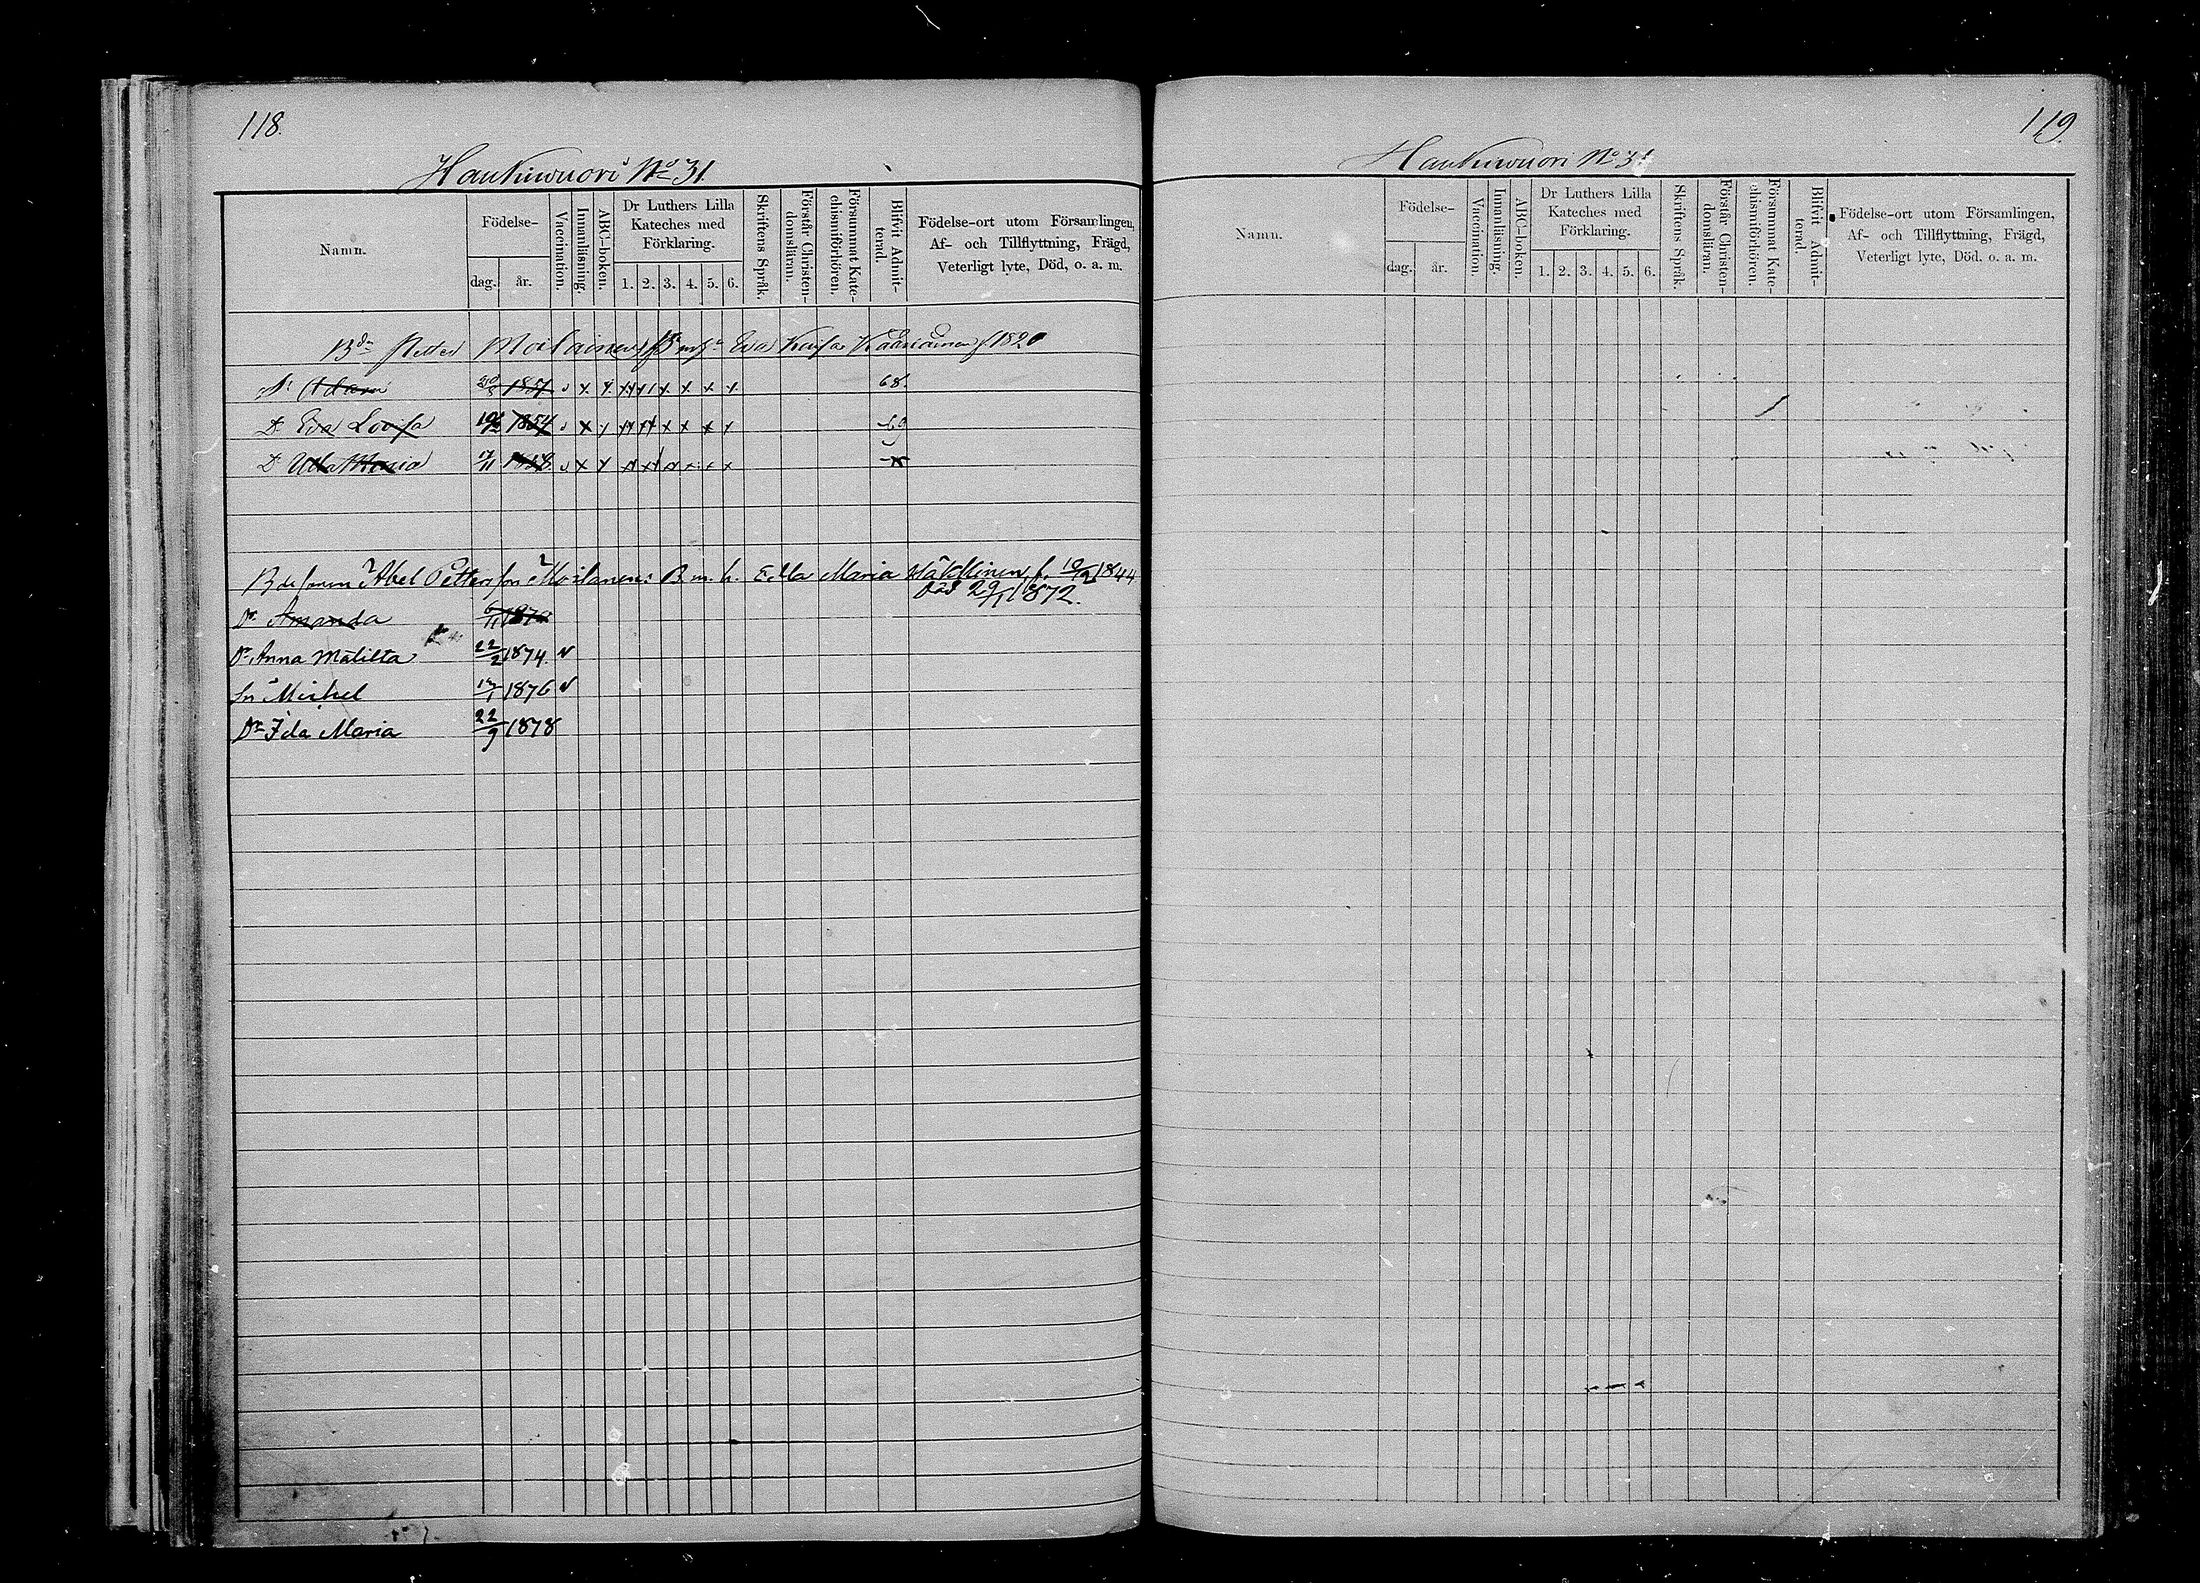 118.
Haukiwuori No 31.
Namn.
Födelse-
dag.
år.
Vaccination.
Innanläsning.
ABC-boken.
Dr Luthers Lilla
Kateches med
Förklaring.
1. 2. 3. 4. 5. 6.
Skriftens Språk.
Förstår Christen-
domsläran.
Försummat Kate-
chismiförhören.
Blifvit Admit-
terad.
Födelse-ort utom Församlingen,
Af- och Tillflyttning, Frägd,
Veterligt lyte, Död, o. a. m.
Bdn Petter Moilainen Eva Kaisa Kääriäinen f 1820
Adam 1851 68.
Dr Eva Lovisa 1854 69
Dr Ulla Maria 17/11 1858
Abel Pettersson Moilanen: B. m. h. Ella Maria Häkkinen f. 10/12 1844
Död 29/11 1872.
Dr Amanda 6/11 1870
Dr Anna Matilta 22/2 1874. v
Sn Mickel 1876 v
Dr Ida Maria 22/9 1878
119.
Haukiwuori No 31
Namn.
Födelse-
dag.
år.
Vaccination.
Innanläsning.
ABC-boken.
Dr Luthers Lilla
Kateches med
Förklaring.
1. 2. 3. 4. 5. 6.
Skriftens Språk.
Förstår Christen-
domsläran.
Försummat Kate-
chismiförhören.
Blifvit Admit-
terad.
Födelse-ort utom Församlingen,
Af- och Tillflyttning, Frägd,
Veterligt lyte, Död. o. a. m.